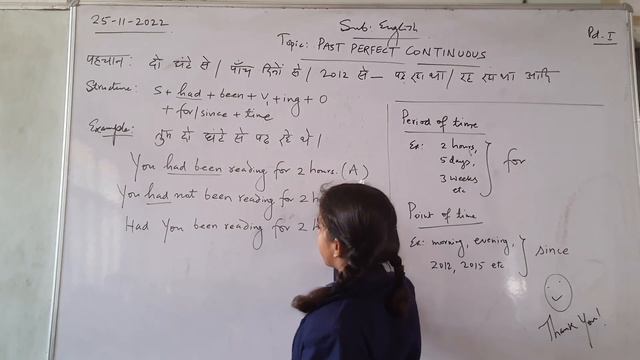 25-11-2022
Sub: English
Pd. I
Topic: PAST PERFECT CONTINUOUS
पहचान: दो घंटे से / पाँच दिनों से / 2012 से — पढ़ रहा था / रह रहा था आदि
Structure: S + had + been + V₁ + ing + O
+ for/since + time
Example: तुम दो घंटे से पढ़ रहे थे।
You had been reading for 2 hours. (A)
You had not been reading for 2
Had You been reading for 2
Period of time
Ex: 2 hours,
5 days,
3 weeks
etc
for
Point of time
Ex: morning, evening,
2012, 2015 etc
since
Thank You!